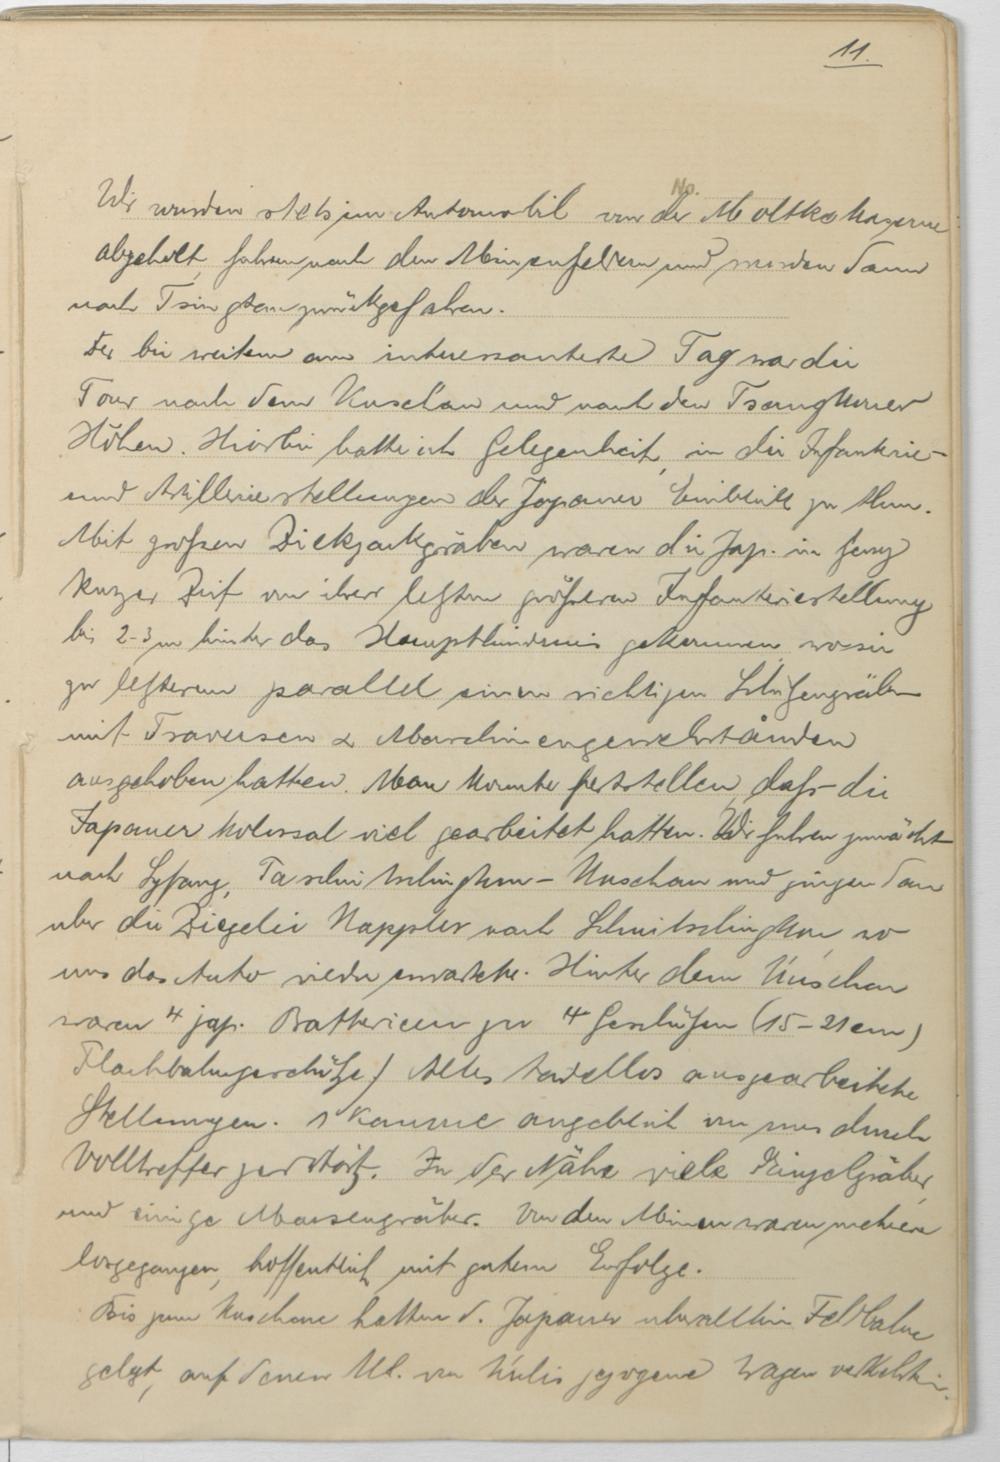 11.
No.
Wir wurden stets im Automobil von der Moltkekaserne
abgeholt, fuhren nach den Minenfeldern und wurden dann
nach Tsingtau zurückgefahren.
Der bei weitem am interessanteste Tag war die
Tour nach dem Kuschan und nach den Tsangkouer
Höhen. Hierbei hatte ich Gelegenheit, in die Infanterie-
und Artilleriestellungen der Japaner Einblick zu tun.
Mit großen Zickzackgräben waren die Jap. in ganz
kurzer Zeit von ihrer letzten größeren Infanteriestellung
bis 2-3 m hinter das Haupthindernis gekommen, wo sie
zu letzterem parallel einen richtigen Schützengräben
mit Traversen & Maschinengewehrständen
ausgehoben hatten. Man konnte feststellen, daß die
Japaner kolossal viel gearbeitet hatten. Wir fuhren zunächst
nach Syfang, Taschintschingkou - Kuschan und gingen dann
über die Ziegelei Kappler nach Schuitschingkou wo
uns das Auto wieder erwartete. Hinter dem Kuschan
waren 4 jap. Batterieen zu 4 Geschützen (15-21 cm)
Flachbahngeschütze) Alles tadellos ausgearbeitete
Stellungen. 1 Kanone angeblich von uns durch
Volltreffer zerstört. In der Nähe viele Einzelgräber,
und einige Massengräber. Von den Minen waren mehrere
losgegangen, hoffentlich mit gutem Erfolge.
Bis zum Kuschan hatten d. Japaner überallhin Feldbahn
gelegt, auf denen kl. von Kulis gezogene Wagen verkehrten.